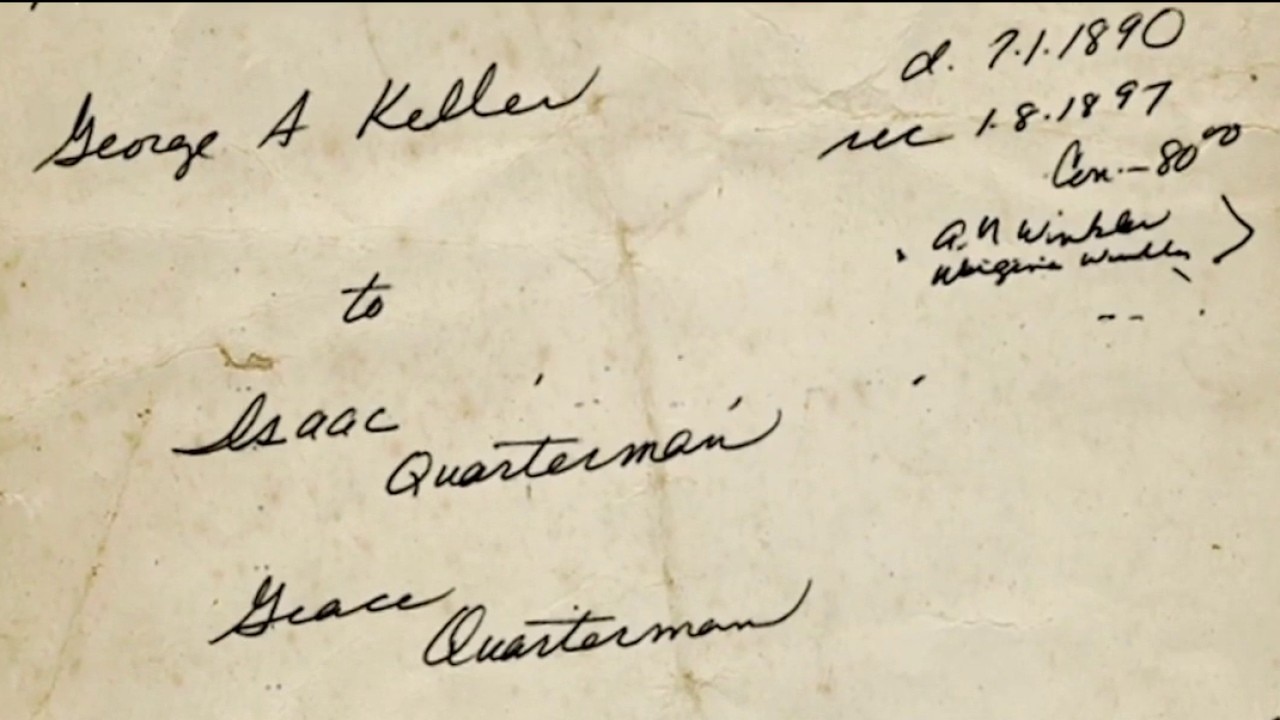 George A Keller
d. 7.1.1890
rec 1.8.1897
Con. – 80⁰⁰
A. N Winkler
Winkler
to
Isaac
Quarterman
Grace
Quarterman